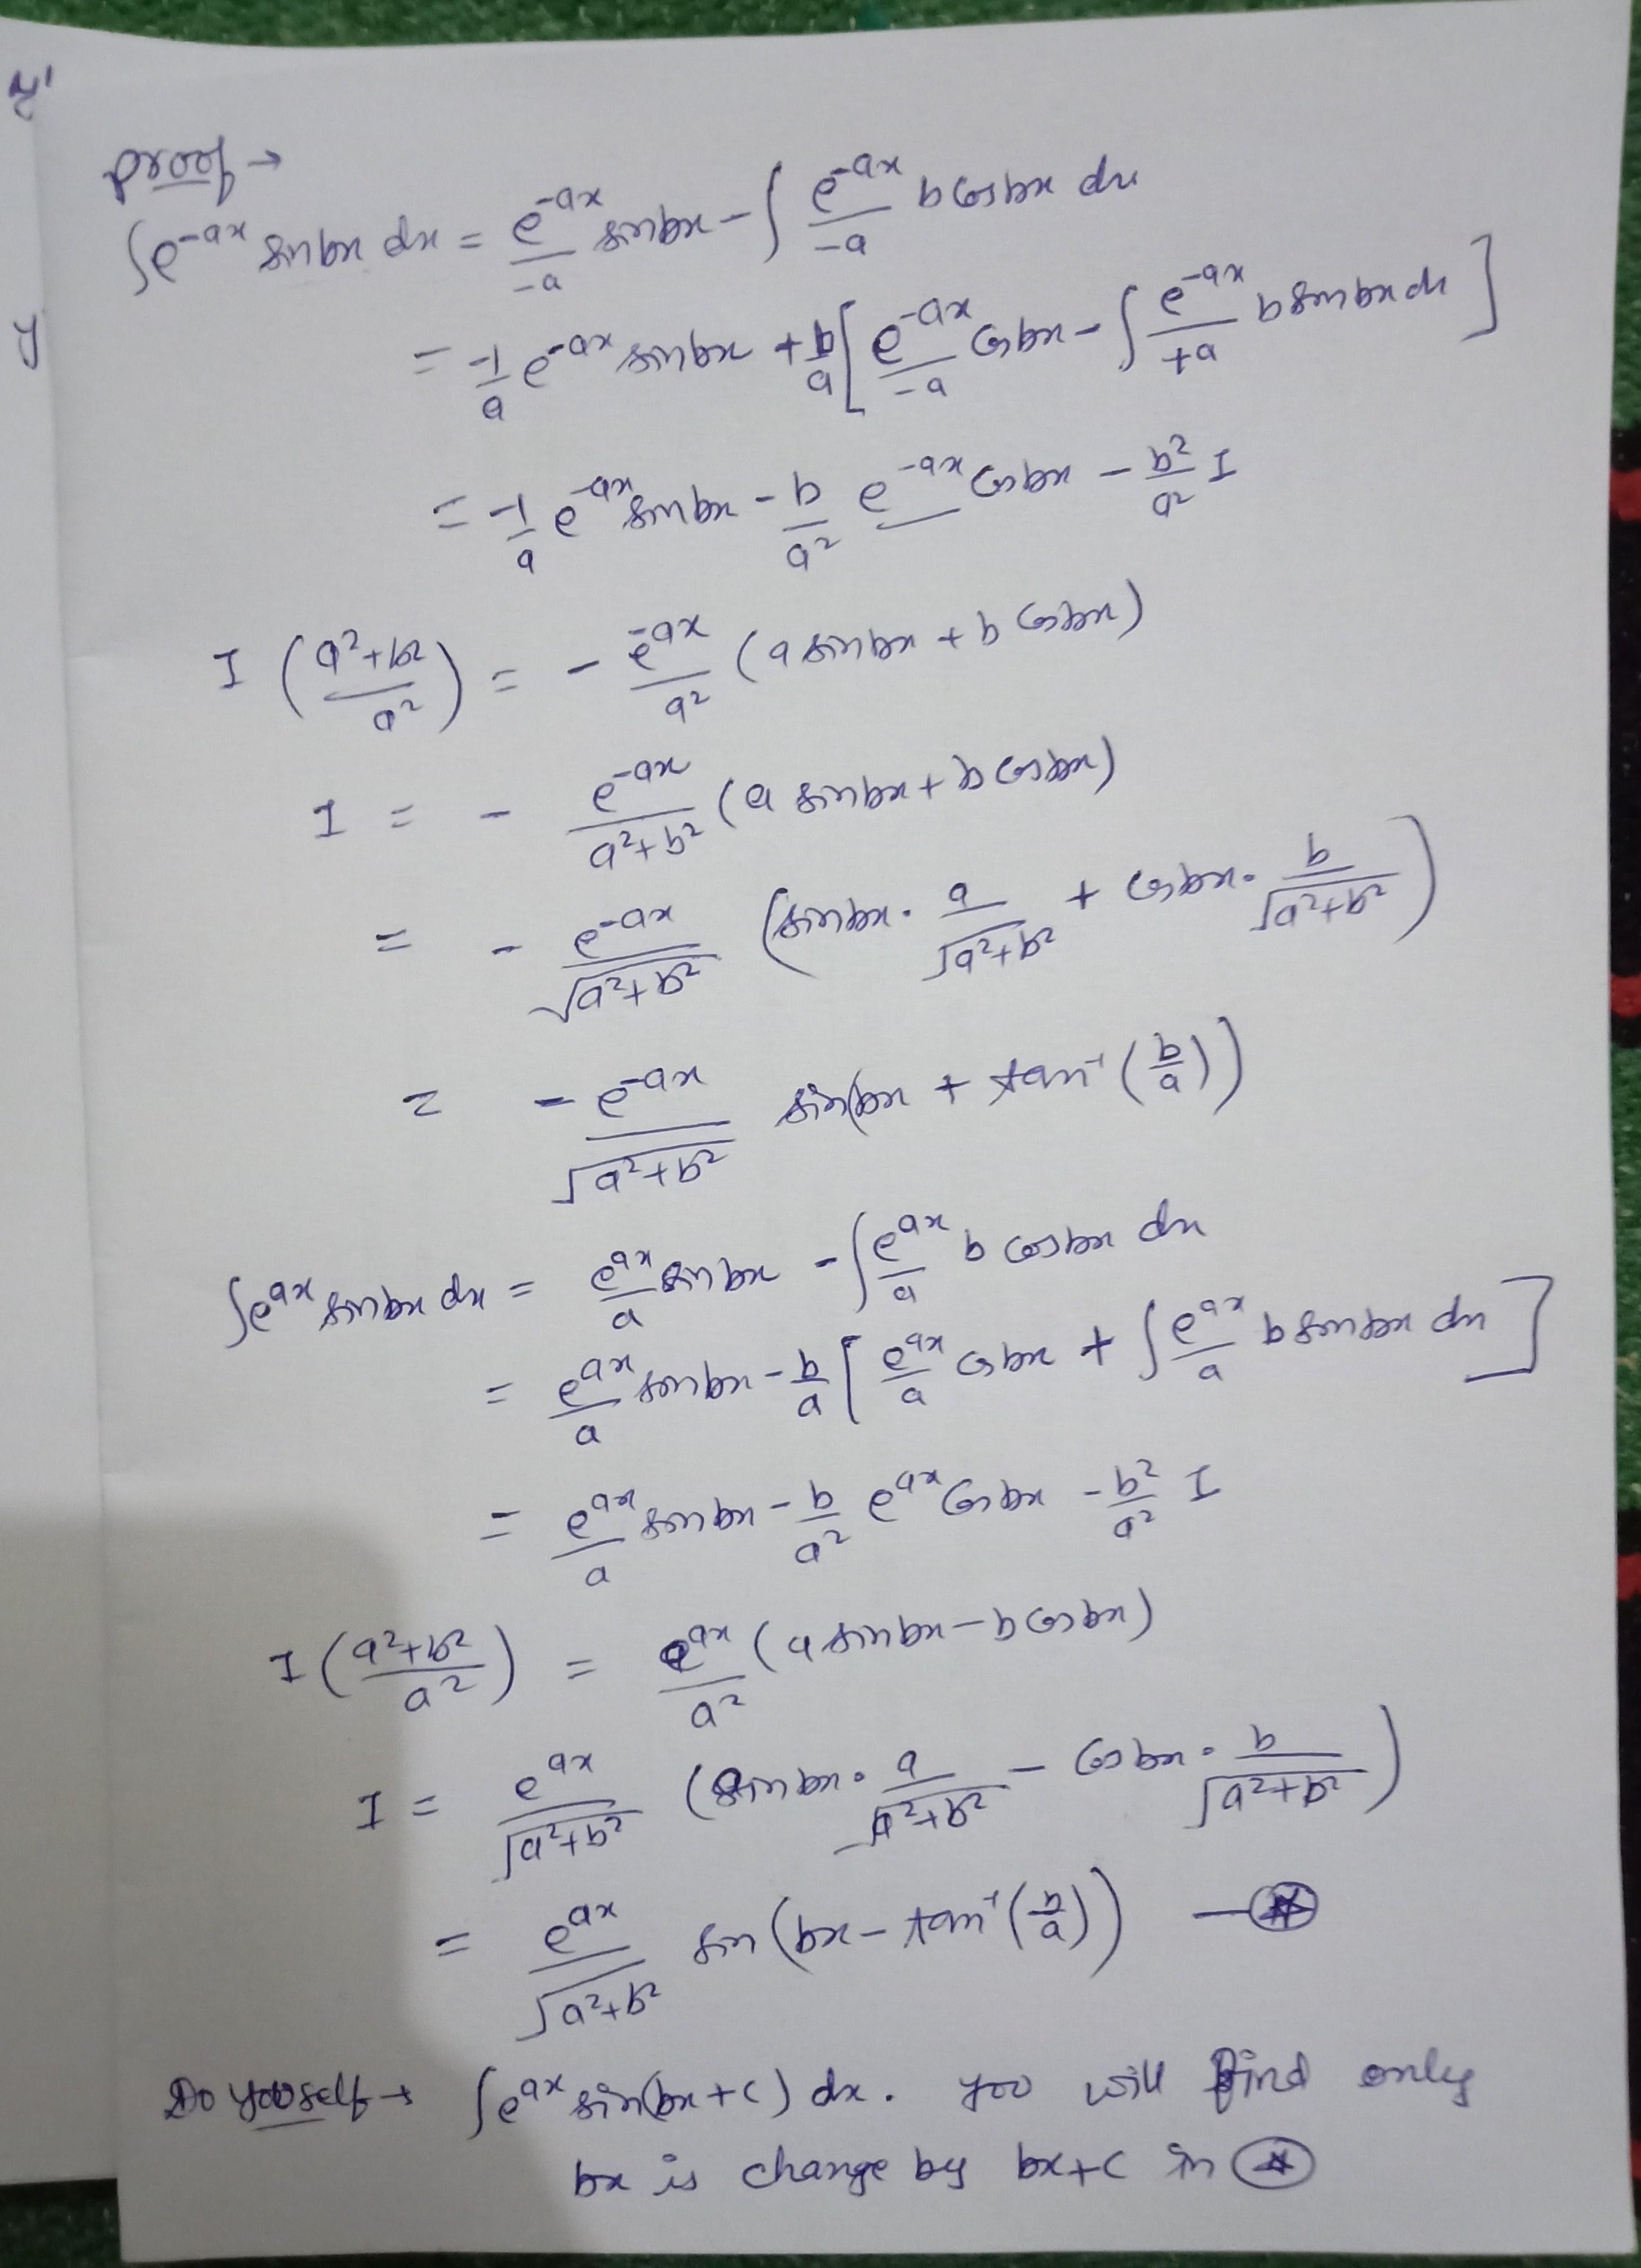 y'
y
proof →
∫e^{-ax} sin bx dx = \frac{e^{-ax}}{-a} sin bx - ∫ \frac{e^{-ax}}{-a} b cos bx dx
= \frac{-1}{a} e^{-ax} sin bx + \frac{b}{a} [ \frac{e^{-ax}}{-a} cos bx - ∫ \frac{e^{-ax}}{+a} b sin bx dx ]
= \frac{-1}{a} e^{-ax} sin bx - \frac{b}{a^2} e^{-ax} cos bx - \frac{b^2}{a^2} I
I ( \frac{a^2+b^2}{a^2} ) = - \frac{e^{-ax}}{a^2} (a sin bx + b cos bx)
I = - \frac{e^{-ax}}{a^2+b^2} (a sin bx + b cos bx)
= - \frac{e^{-ax}}{\sqrt{a^2+b^2}} (sin bx · \frac{a}{\sqrt{a^2+b^2}} + cos bx · \frac{b}{\sqrt{a^2+b^2}})
= - \frac{e^{-ax}}{\sqrt{a^2+b^2}} sin(bx + tan^{-1}(\frac{b}{a}))
∫e^{ax} sin bx dx = \frac{e^{ax}}{a} sin bx - ∫ \frac{e^{ax}}{a} b cos bx dx
= \frac{e^{ax}}{a} sin bx - \frac{b}{a} [ \frac{e^{ax}}{a} cos bx + ∫ \frac{e^{ax}}{a} b sin bx dx ]
= \frac{e^{ax}}{a} sin bx - \frac{b}{a^2} e^{ax} cos bx - \frac{b^2}{a^2} I
I ( \frac{a^2+b^2}{a^2} ) = \frac{e^{ax}}{a^2} (a sin bx - b cos bx)
I = \frac{e^{ax}}{\sqrt{a^2+b^2}} (sin bx · \frac{a}{\sqrt{a^2+b^2}} - cos bx · \frac{b}{\sqrt{a^2+b^2}})
= \frac{e^{ax}}{\sqrt{a^2+b^2}} sin (bx - tan^{-1}(\frac{b}{a})) — ⊛
Do yourself → ∫e^{ax} sin(bx+c) dx. you will find only
bx is change by bx+c in ⊛